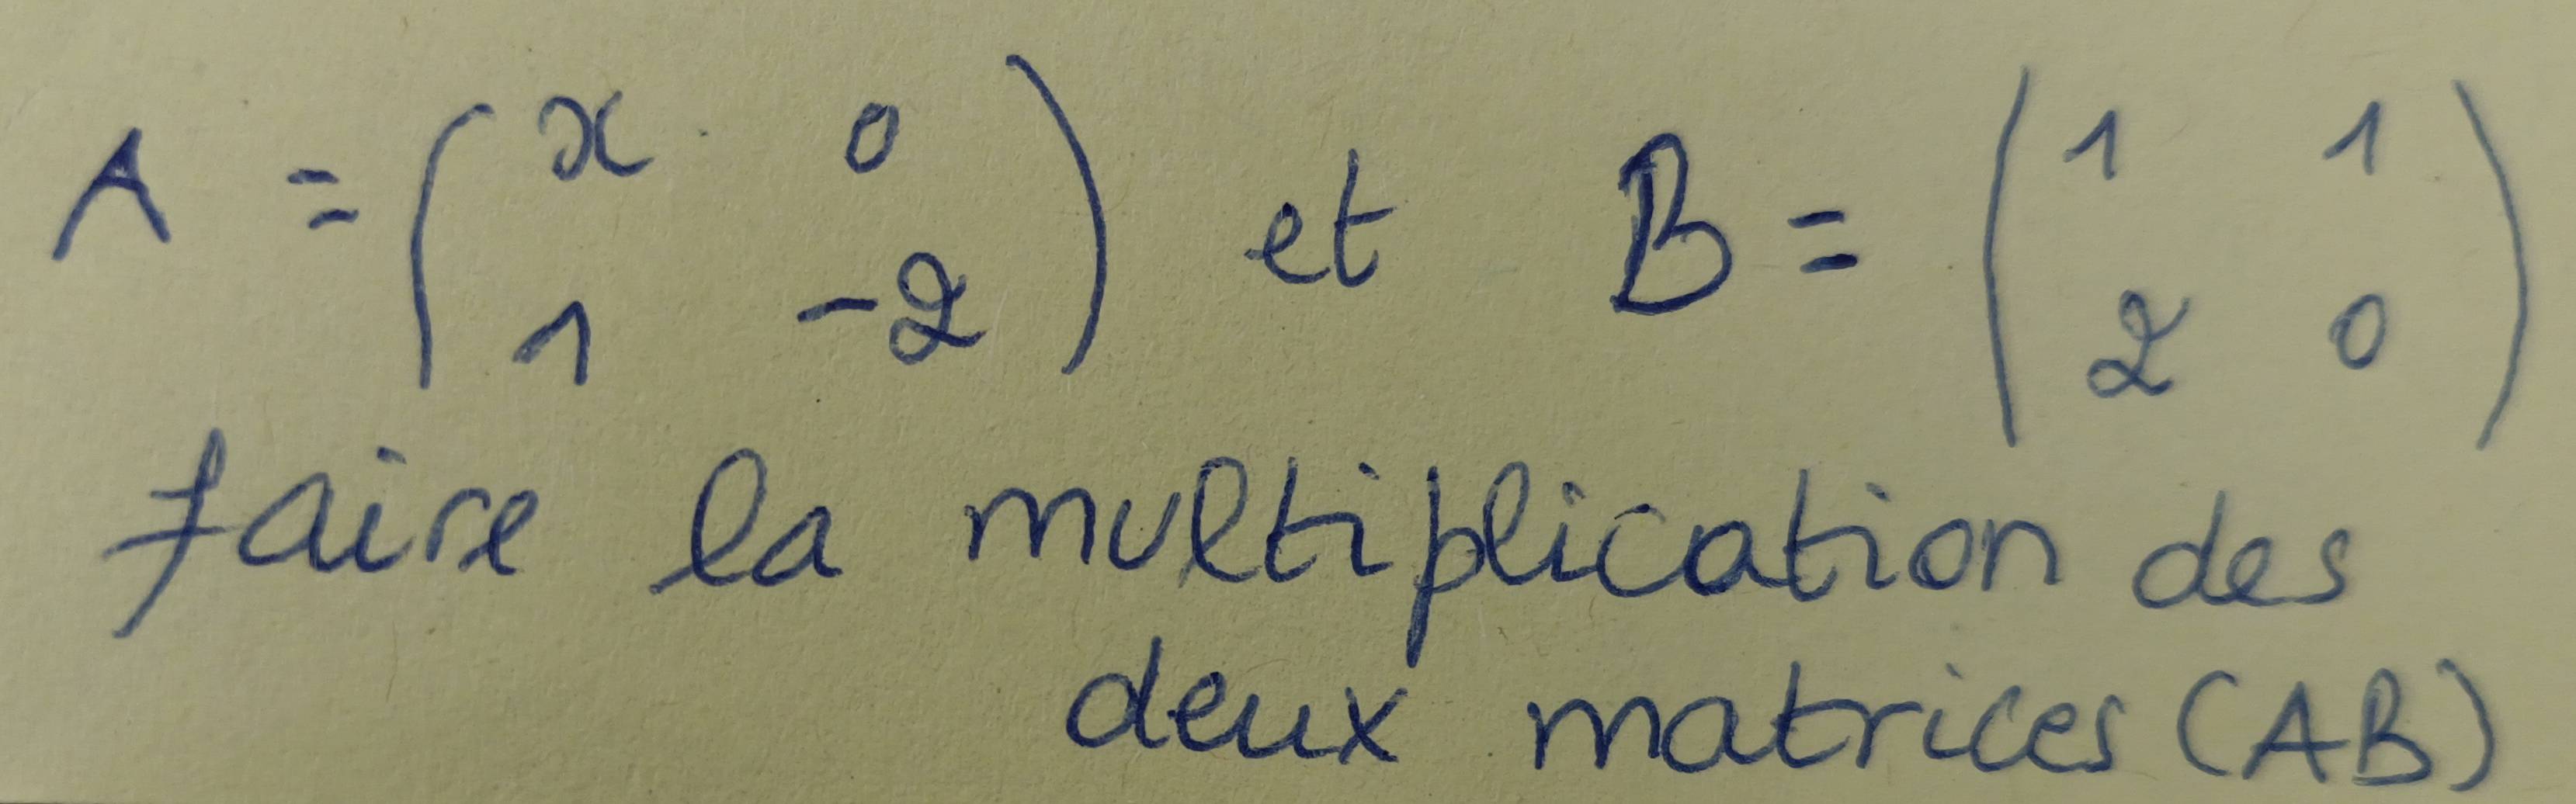 A = ( x 0 ; 1 -2 ) et B = ( 1 1 ; 2 0 )
faire la multiplication des
deux matrices (AB)